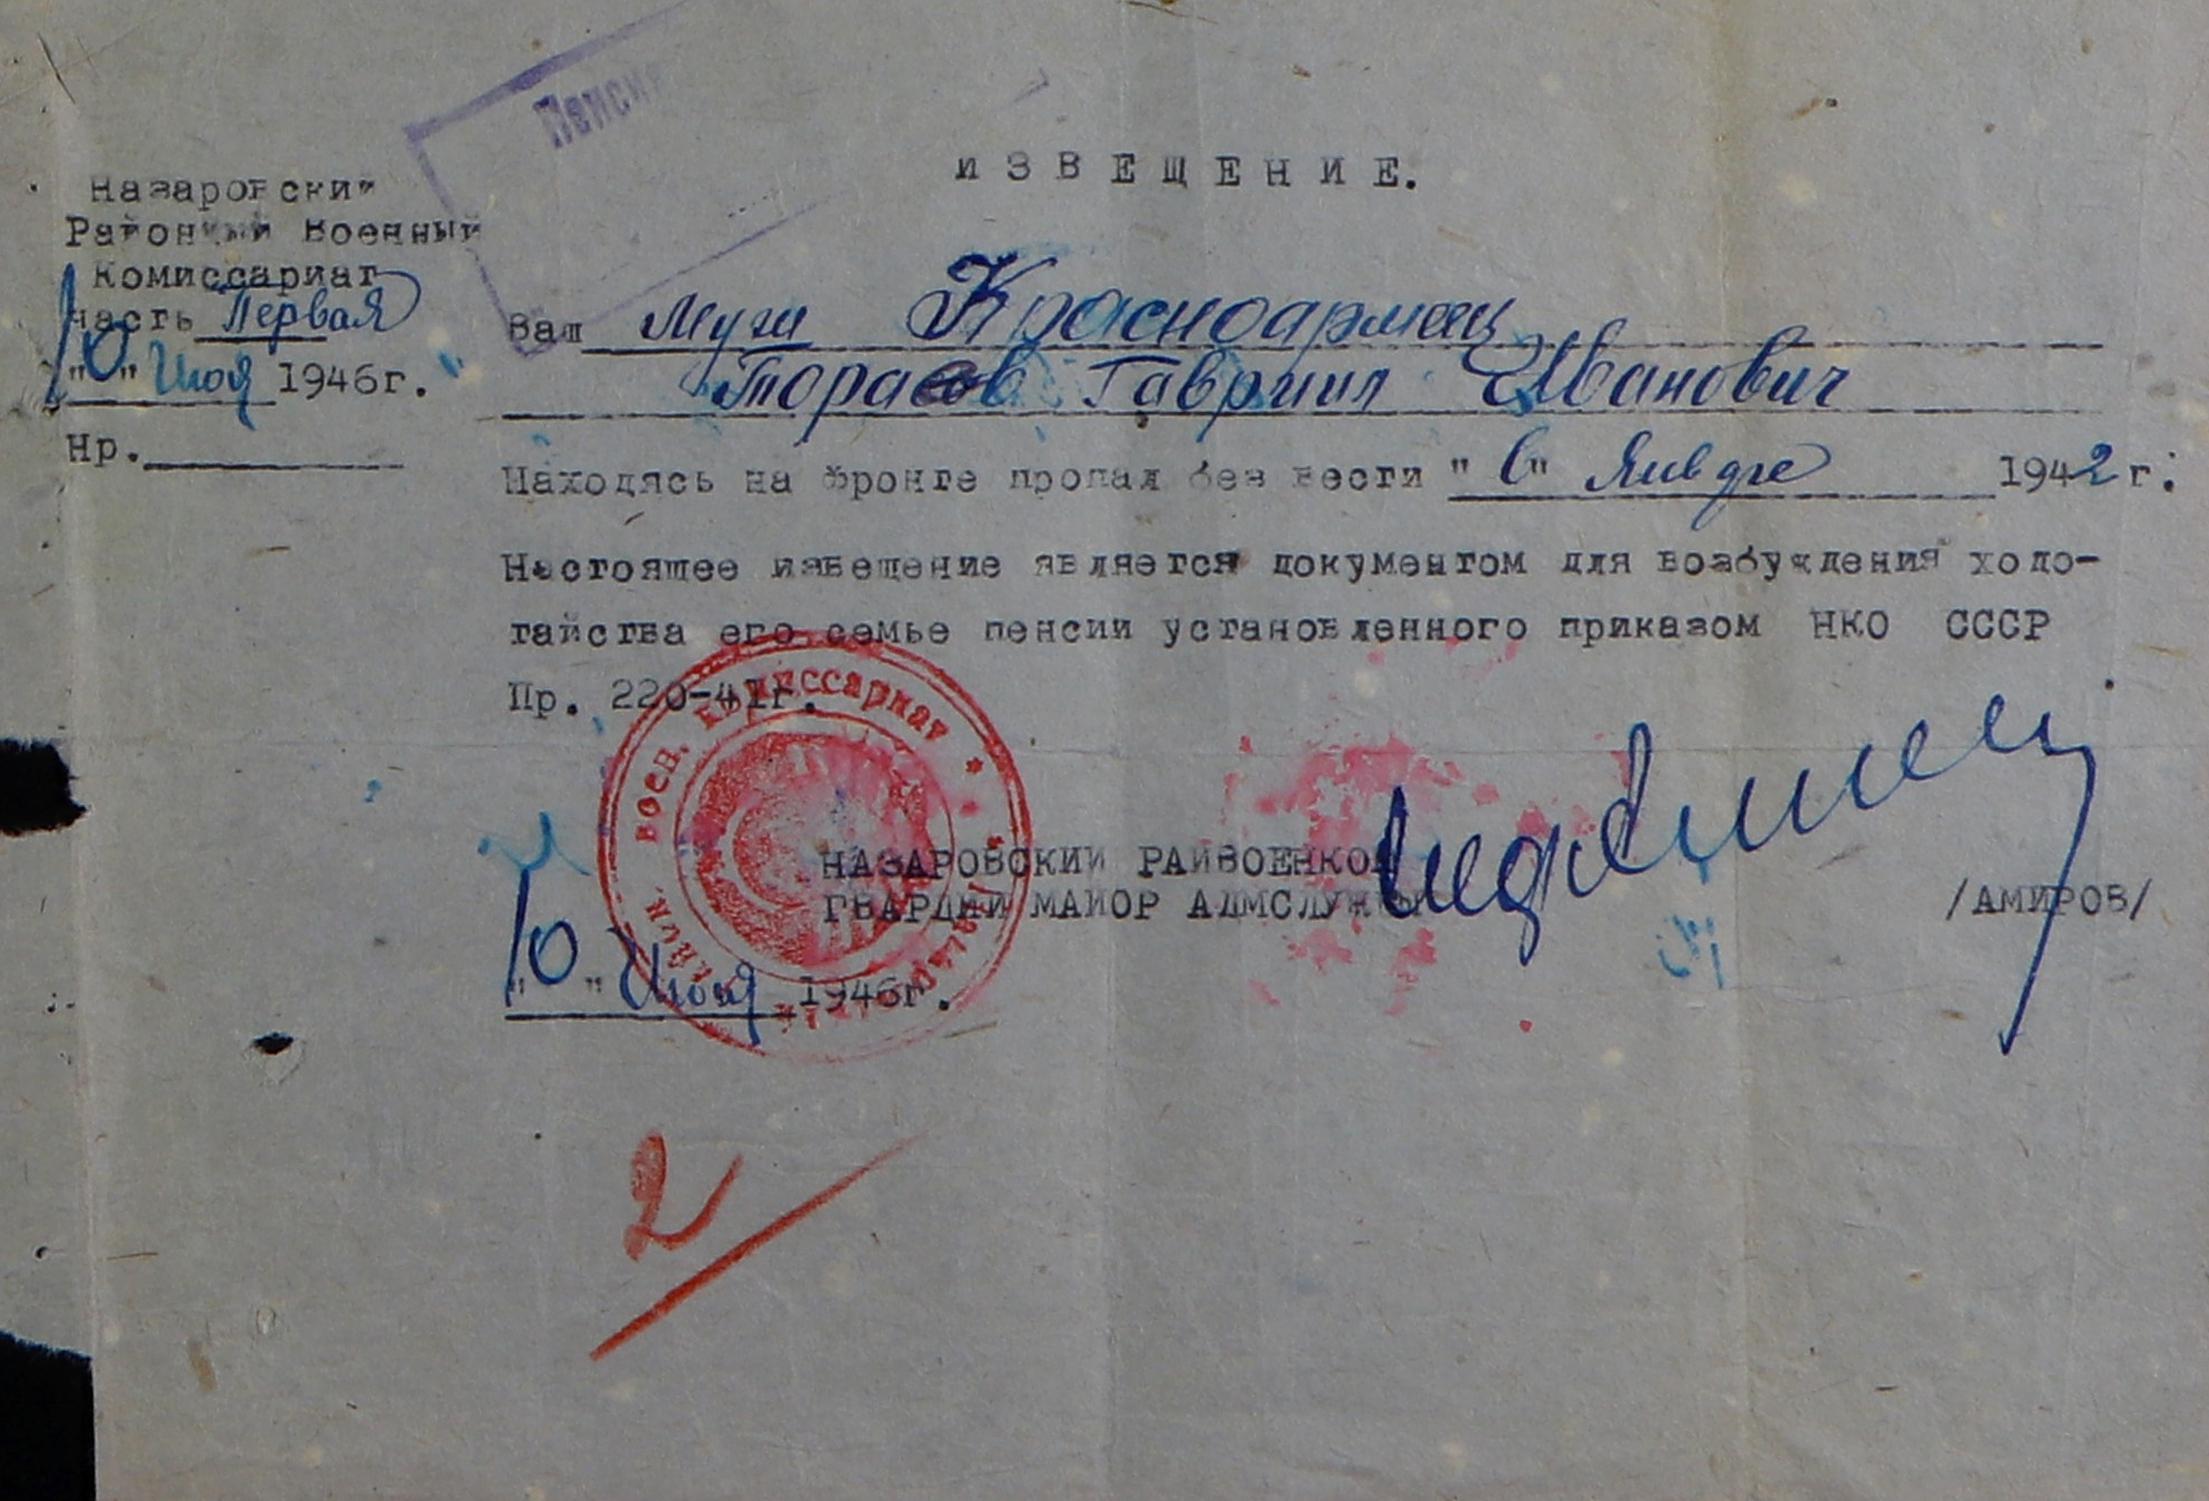 Пенси
ИЗВЕЩЕНИЕ.
Назаровский
Районный Военный
Комиссариат
часть Первая
"10" Июня 1946г.
Нр.
Ваш муж Красноармеец
Торасов Гавриил Иванович
Находясь на фронте пропал без вести "в" Январе 1942 г.
Настоящее извещение является документом для возбуждения ходо-
тайства его семье пенсии установленного приказом НКО СССР
Пр. 220-41г.
воен. комиссариат
НАЗАРОВСКИЙ РАЙВОЕНКОМ
ГВАРДИИ МАЙОР АДМСЛУЖБЫ
/АМИРОВ/
"10" Июня 1946г.
2